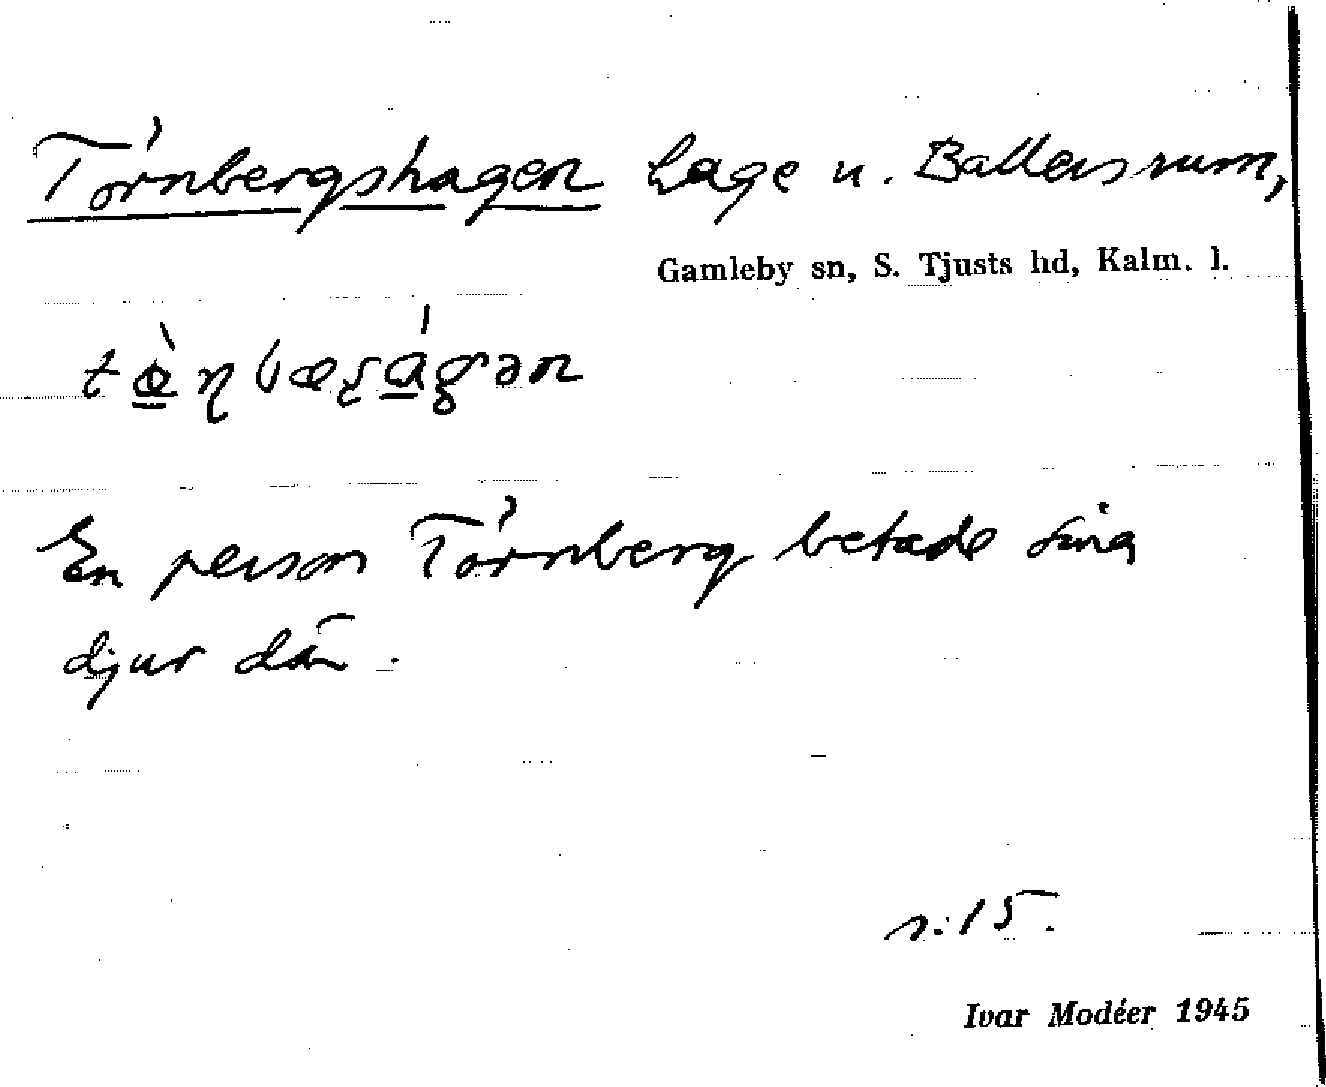 Törnbergshagen hage u. Ballersrum,
Gamleby sn, S. Tjusts hd, Kalm. l.
En person Törnberg betade sina
djur där.
s. 15.
Ivar Modéer 1945